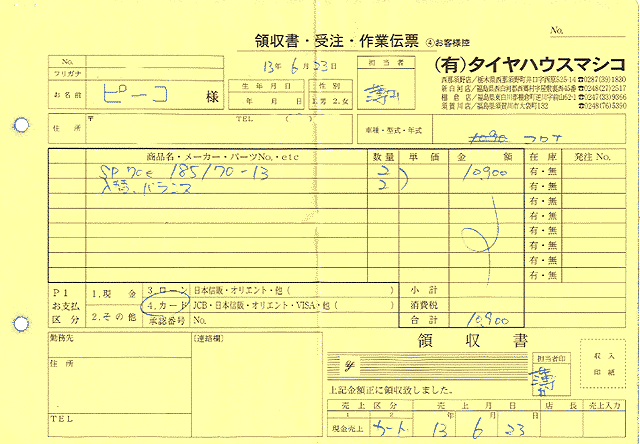 No.
領収書・受注・作業伝票 ④お客様控
13年 6月 23日
担当者
(有)タイヤハウスマシコ
西那須野店/栃木県西那須野町井口字西原525-14 ☎0287(39)1830
新白河店/福島県西白河郡西郷村字屋敷裏西45番 ☎0248(27)2517
棚倉店/福島県東白川郡棚倉町逆川字前山62-1 ☎0247(33)9366
須賀川店/福島県須賀川市大袋町132 ☎0248(76)5350
No.
フリガナ
お名前 ピーコ 様
生年月日 性別
年・月 1.男 2.女
住所 〒 TEL ( )
車種・型式・年式
コロナ
商品名・メーカー・パーツNo.・etc 数量 単価 金額 在庫 発注No.
SP 70e 185/70-13 2 10900 有・無
入替、バランス 2 有・無
有・無
有・無
有・無
有・無
有・無
有・無
P1 お支払区分
1.現金 3.ローン 日本信販・オリエント・他( ) 小計
4.カード JCB・日本信販・オリエント・VISA・他( ) 消費税
2.その他 承認番号 No. 合計 10,900
勤務先 [連絡欄] 領収書
住所
担当者印
収入印紙
上記金額正に領収致しました。
TEL
売上区分 売上月日 店長 売上入力
1 2 年 月 日
現金売上 カート 13 6 23